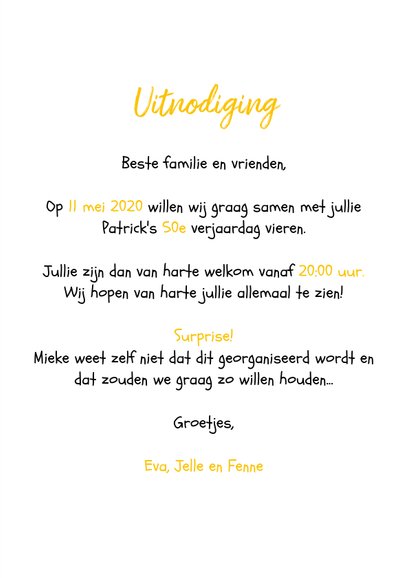 Uitnodiging
Beste familie en vrienden,
Op 11 mei 2020 willen wij graag samen met jullie
Patrick's 50e verjaardag vieren.
Jullie zijn dan van harte welkom vanaf 20:00 uur.
Wij hopen van harte jullie allemaal te zien!
Surprise!
Mieke weet zelf niet dat dit georganiseerd wordt en
dat zouden we graag zo willen houden...
Groetjes,
Eva, Jelle en Fenne